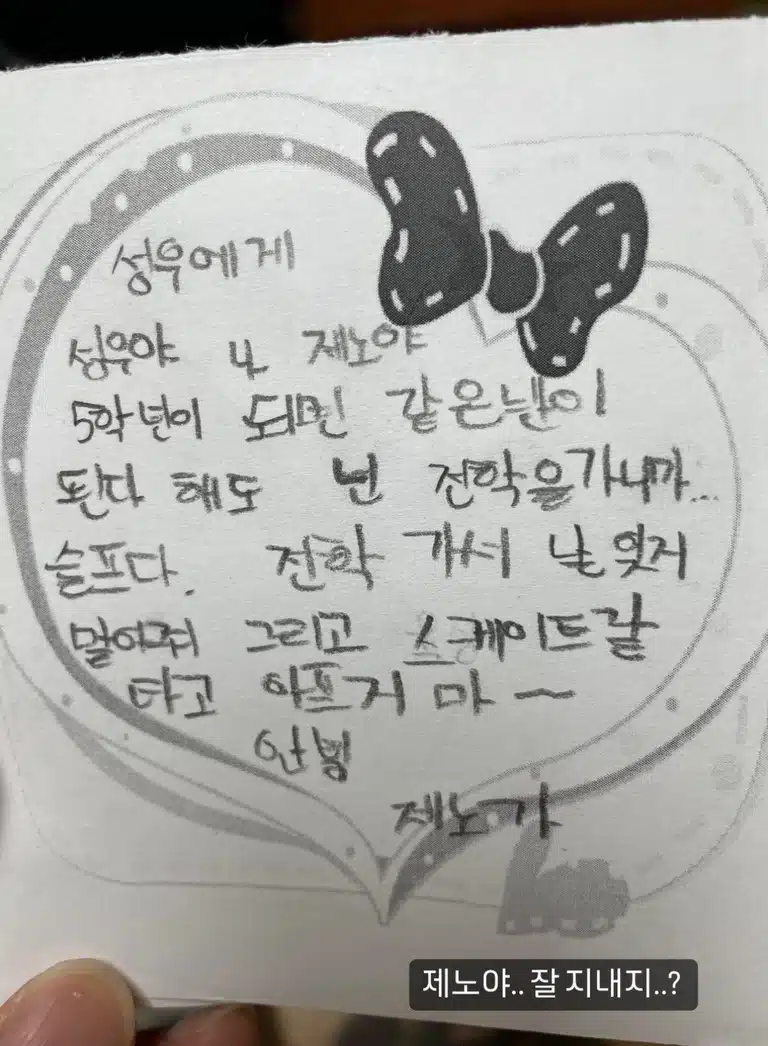 성우에게
성우야 나 제노야
5학년이 되면 같은반이
된다 해도 넌 전학을가니까...
슬프다. 전학 가서 날 잊지
말아줘 그리고 스케이트잘
타고 아프지 마~
안녕
제노가
제노야.. 잘 지내지..?